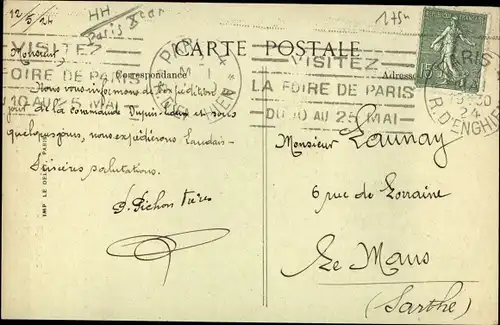 12/5/24
HH
Paris 8 car
175n
CARTE POSTALE
Correspondance
Adresse
VISITEZ
LA FOIRE DE PARIS
DU 10 AU 25 MAI
VISITEZ
FOIRE DE PARIS
DU 10 AU 25 MAI
PARIS
R. D'ENGHIEN
PARIS
24
R. D'ENGHIEN
15
Monsieur,
Nous vous informons de l'expédition
jour de la commande et sous
quelques jours, nous expédierons
Sincères salutations.
P. Pichon Frères
Monsieur Launay
6 rue de Lorraine
Le Mans
(Sarthe)
IMP. LE DELEY, PARIS